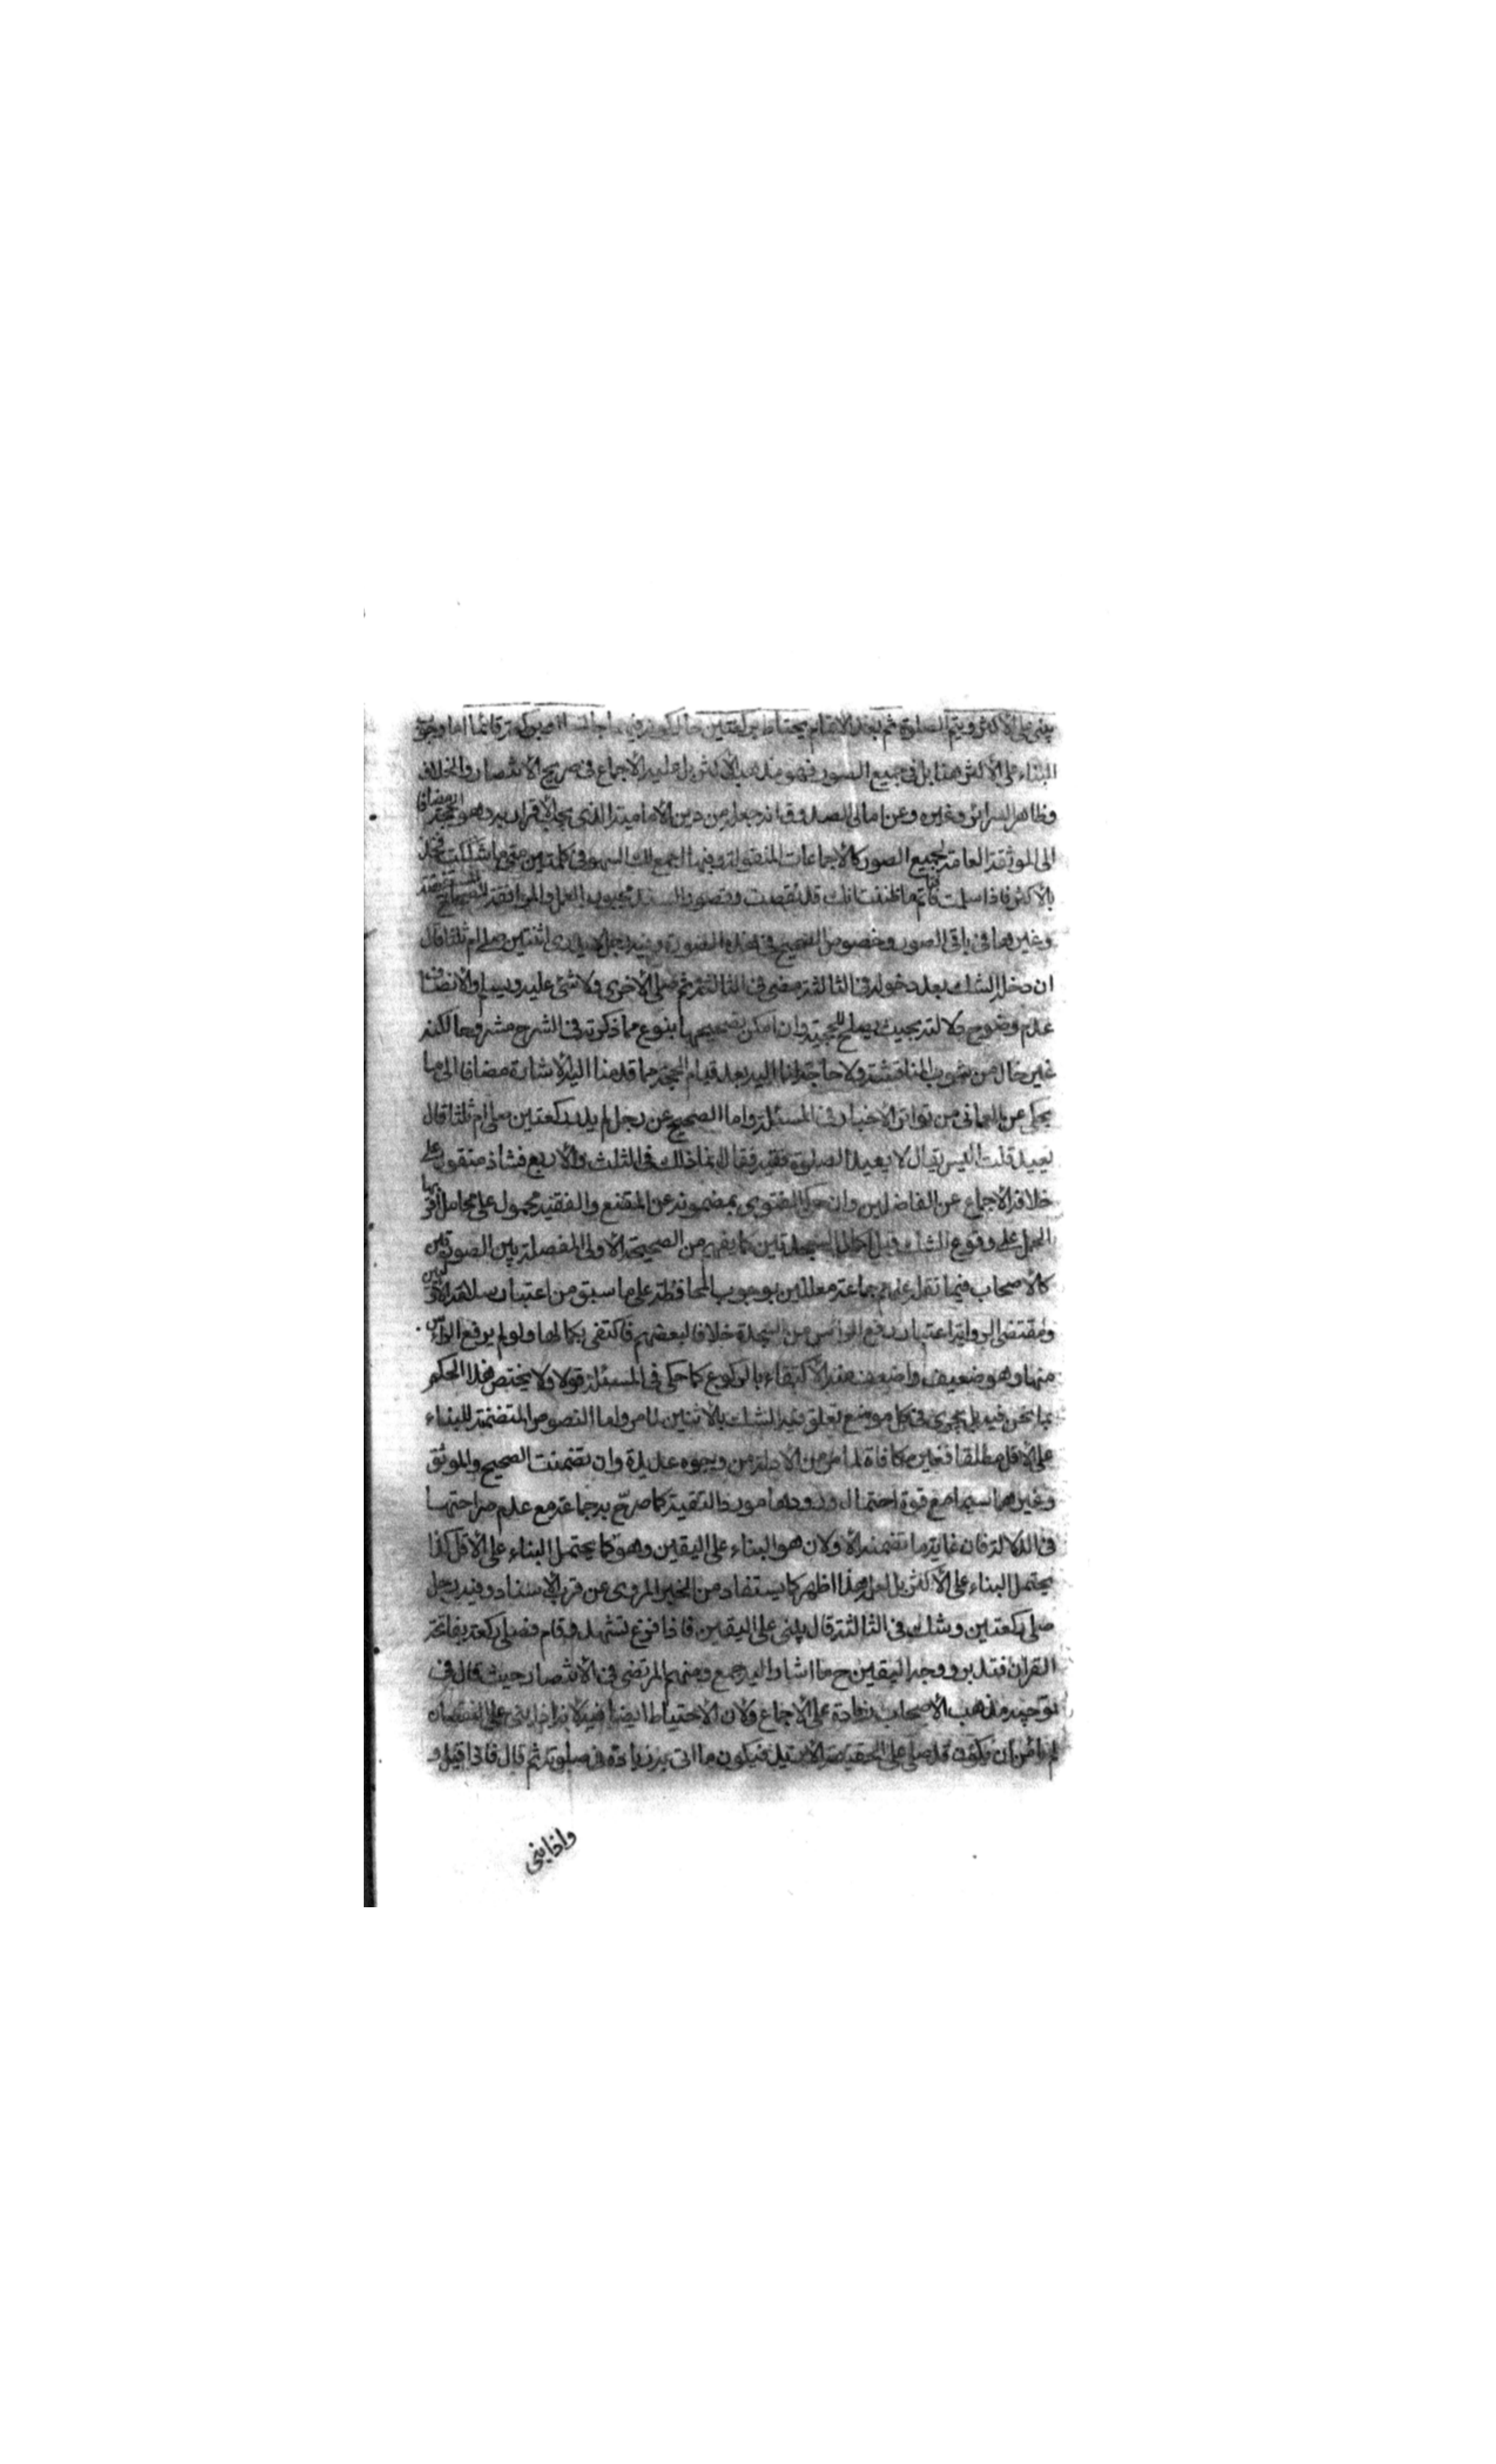 يبنى على الاكثر ويتم الصلوة ثم بعد الاتمام يحتاط بركعتين جالسا او بركعة قائما اما وجوب
البناء على الاكثر هنا بل في جميع الصور فهو مذهب الاكثر بل عليه الاجماع في صريح الانتصار والخلاف
وظاهر السرائر وغيره وعن امالى الصدوق انه جعله من دين الامامية الذى يجب الاقرار به وهو الحجة مضافا
الى الموثقة العامة لجميع الصور كالاجماعات المنقولة وفيها اجمع لك السهو في كلمتين متى ما شككت فخذ
بالاكثر فاذا سلمت فاتم ما ظننت انك قد نقصت وقصور السند مجبور بالعمل والموافقة للصحاح
وغيرهما في باقى الصور وخصوص الصحيح في هذه الصورة وفيه رجل لا يدرى اثنتين صلى ام ثلثا قال
ان دخل الشك بعد دخوله في الثالثة مضى في الثالثة ثم صلى الاخرى ولا شئ عليه ويسلم والانصاف
عدم وضوح دلالته بحيث يصلح للحجية وان امكن تصحيحها بنوع مما ذكرته في الشرح مشروحا لكنه
غير خال من شوب المناقشة ولا حاجة لنا اليه بعد قيام الحجة مما قدمنا اليه الاشارة مضافا الى ما
يحكى عن العمانى من تواتر الاخبار في المسئلة واما الصحيح عن رجل لم يدر ركعتين صلى ام ثلثا قال
يعيد قلت اليس يقال لا يعيد الصلوة فقيه فقال انما ذلك في الثلث والاربع فشاذ منقول على
خلافه الاجماع عن الفاضلين وان حكى الفتوى بمضمونه عن المقنع والفقيه محمول على محامل اقربها
الحمل على وقوع الشك قبل اكمال السجدتين كما يفهم من الصحيحة الاولى المفصلة بين الصورتين
كالاصحاب فيما نقل عنهم جماعة معللين بوجوب المحافظة على ما سبق من اعتبار سلامة الاولتين
ومقتضى الرواية اعتبار رفع الرأس من السجدة خلافا لبعضهم فاكتفى بكمالها ولو لم يرفع الرأس
منها وهو ضعيف واضعف منه الاكتفاء بالركوع كما حكى في المسئلة قولا ولا يختص هذا الحكم
بما نحن فيه بل يجرى في كل موضع تعلق فيه الشك بالاثنين لما مر واما النصوص المتضمنة للبناء
على الاقل مطلقا فغير مكافاة لما مر من الادلة من وجوه عديدة وان تضمنت الصحيح والموثق
وغيرهما سيما مع قوة احتمال ورودها مورد التقية كما صرح به جماعة مع عدم صراحتها
في الدلالة فان غاية ما تضمنه الاولان هو البناء على اليقين وهو كما يحتمل البناء على الاقل كذا
يحتمل البناء على الاكثر بل لعل هذا اظهر كما يستفاد من الخبر المروى عن قرب الاسناد وفيه رجل
صلى ركعتين وشك في الثالثة قال يبنى على اليقين فاذا فرغ تشهد وقام فصلى ركعة بفاتحة
القران فتدبر ووجه اليقين ح ما اشار اليه جمع ومنهم المرتضى في الانتصار حيث قال في
توجيه مذهب الاصحاب زيادة على الاجماع ولان الاحتياط ايضا فيه لانه اذا بنى على النقصان
لم يامن ان يكون قد صلى على الحقيقة الازيد فيكون ما اتى به زيادة في صلوته ثم قال فاذا قيل و
واذا بنى